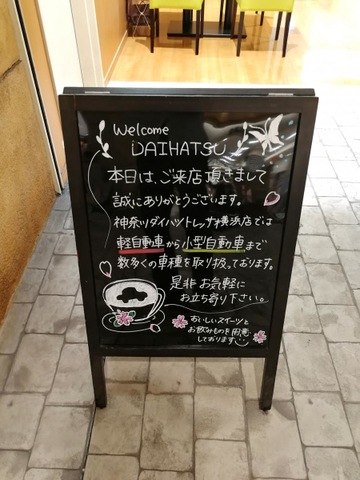 Welcome
DAIHATSU
本日は、ご来店頂きまして
誠にありがとうございます。
神奈川ダイハツトレッサ横浜店では
軽自動車から小型自動車まで
数多くの車種を取り扱っております。
是非お気軽に
お立ち寄り下さい。
おいしいスイーツと
お飲みものを用意
しております